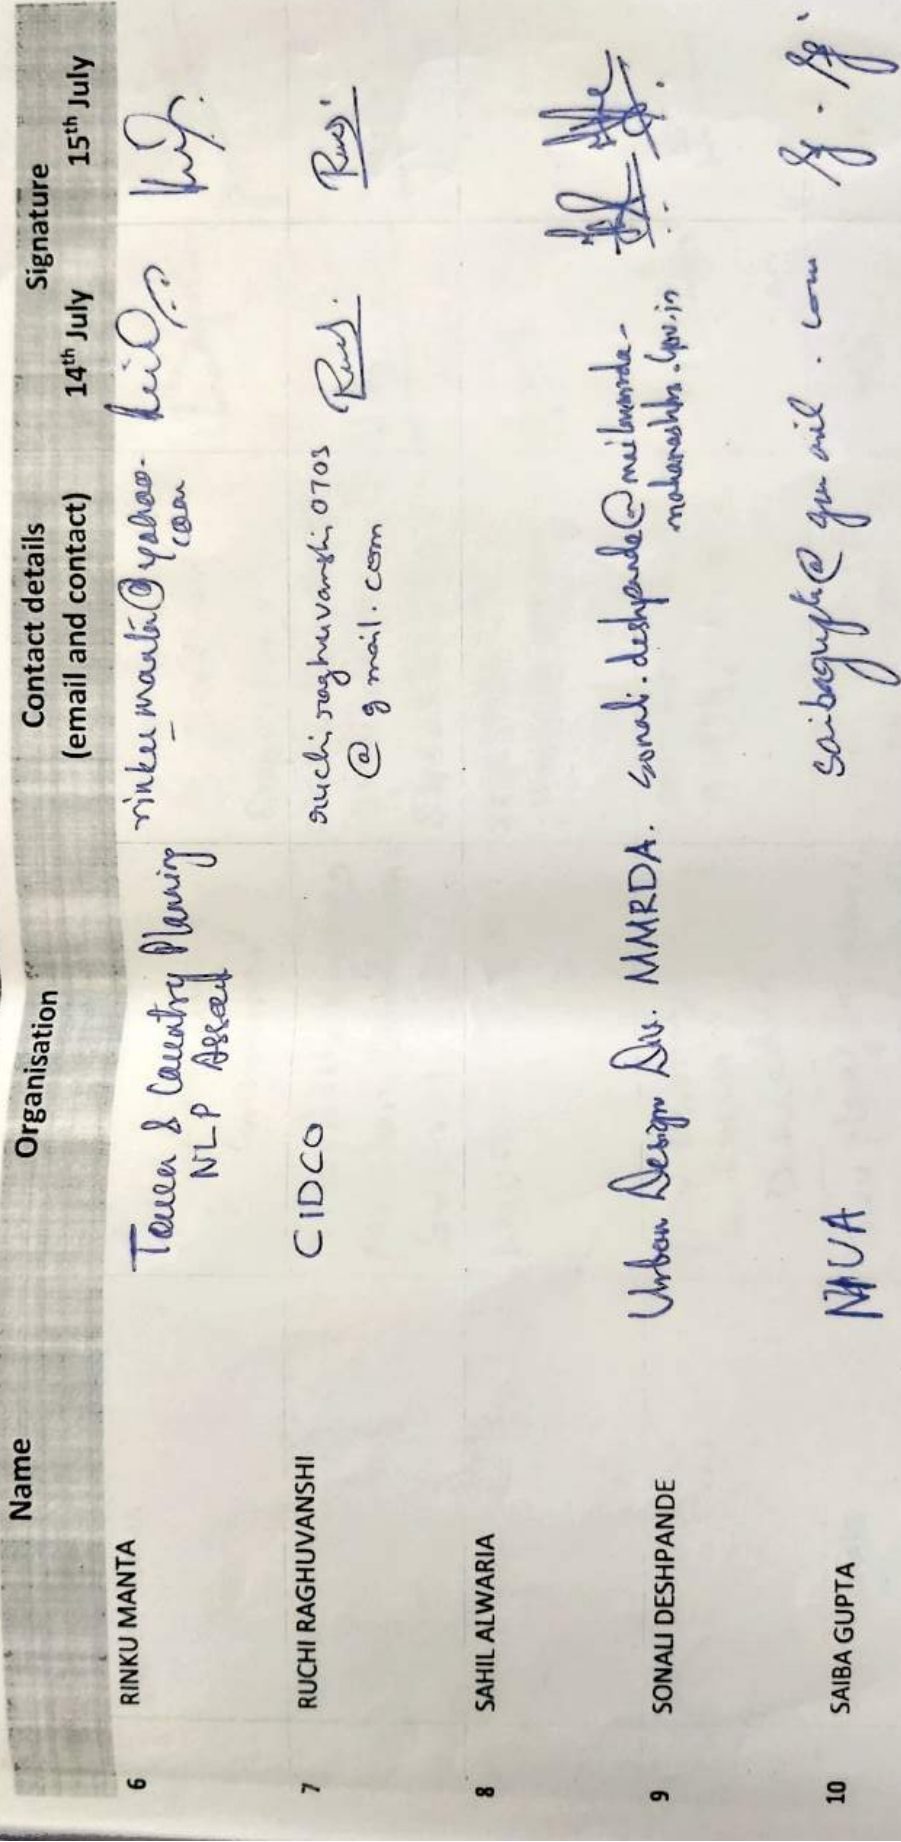 Name Organisation Contact details Signature
(email and contact) 14th July 15th July
6 RINKU MANTA Town & Country Planning rinku_manta@yahoo.
NLP com
7 RUCHI RAGHUVANSHI CIDCO ruchi.raghuvanshi0703
@gmail.com
8 SAHIL ALWARIA
9 SONALI DESHPANDE Urban Design Div. MMRDA. sonali.deshpande@mailmmrda-
maharashtra.gov.in
10 SAIBA GUPTA NIUA saibagupta@gmail.com